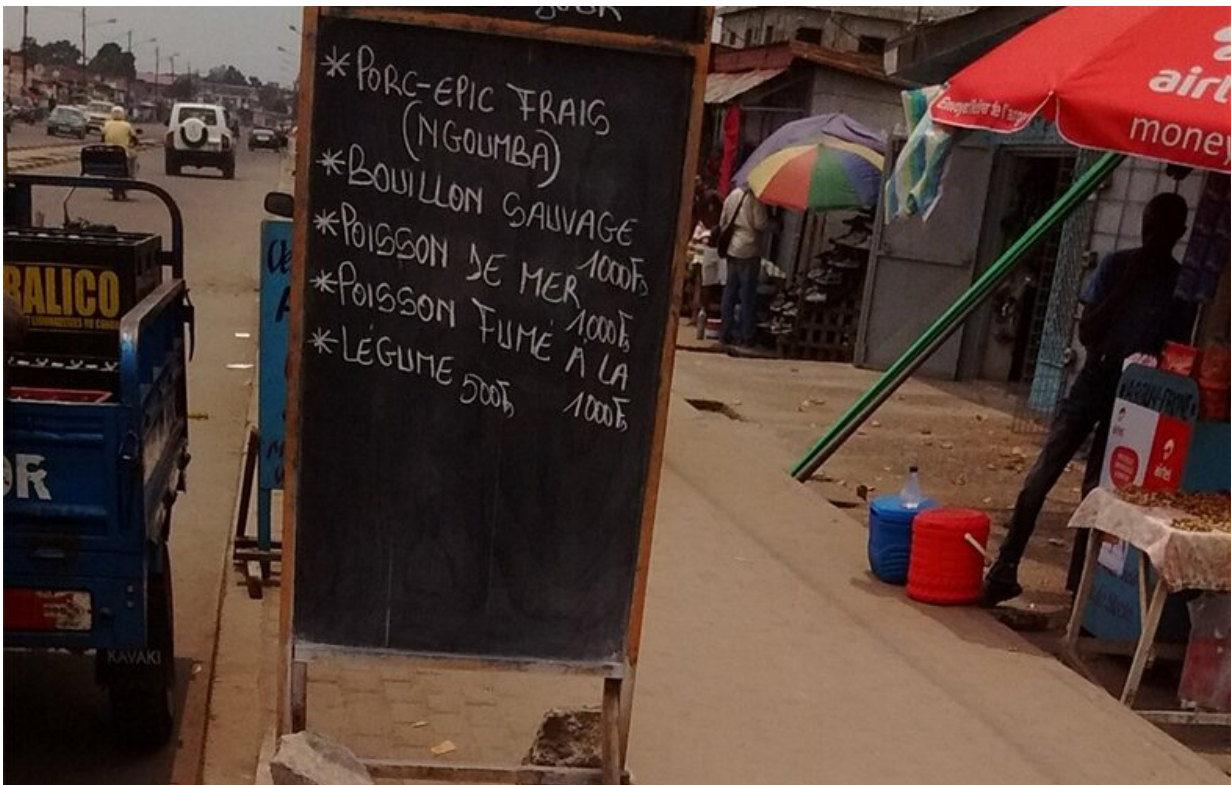 JOUR
*PORC-EPIC FRAIS
(NGOUMBA)
*BOUILLON SAUVAGE
1000Fs
*POISSON DE MER
1000Fs
*POISSON FUMÉ À LA
1000Fs
*LÉGUME 500Fs
BALICO
OR
KAVAKI
airt
money
Envoyer
airtel
airtel